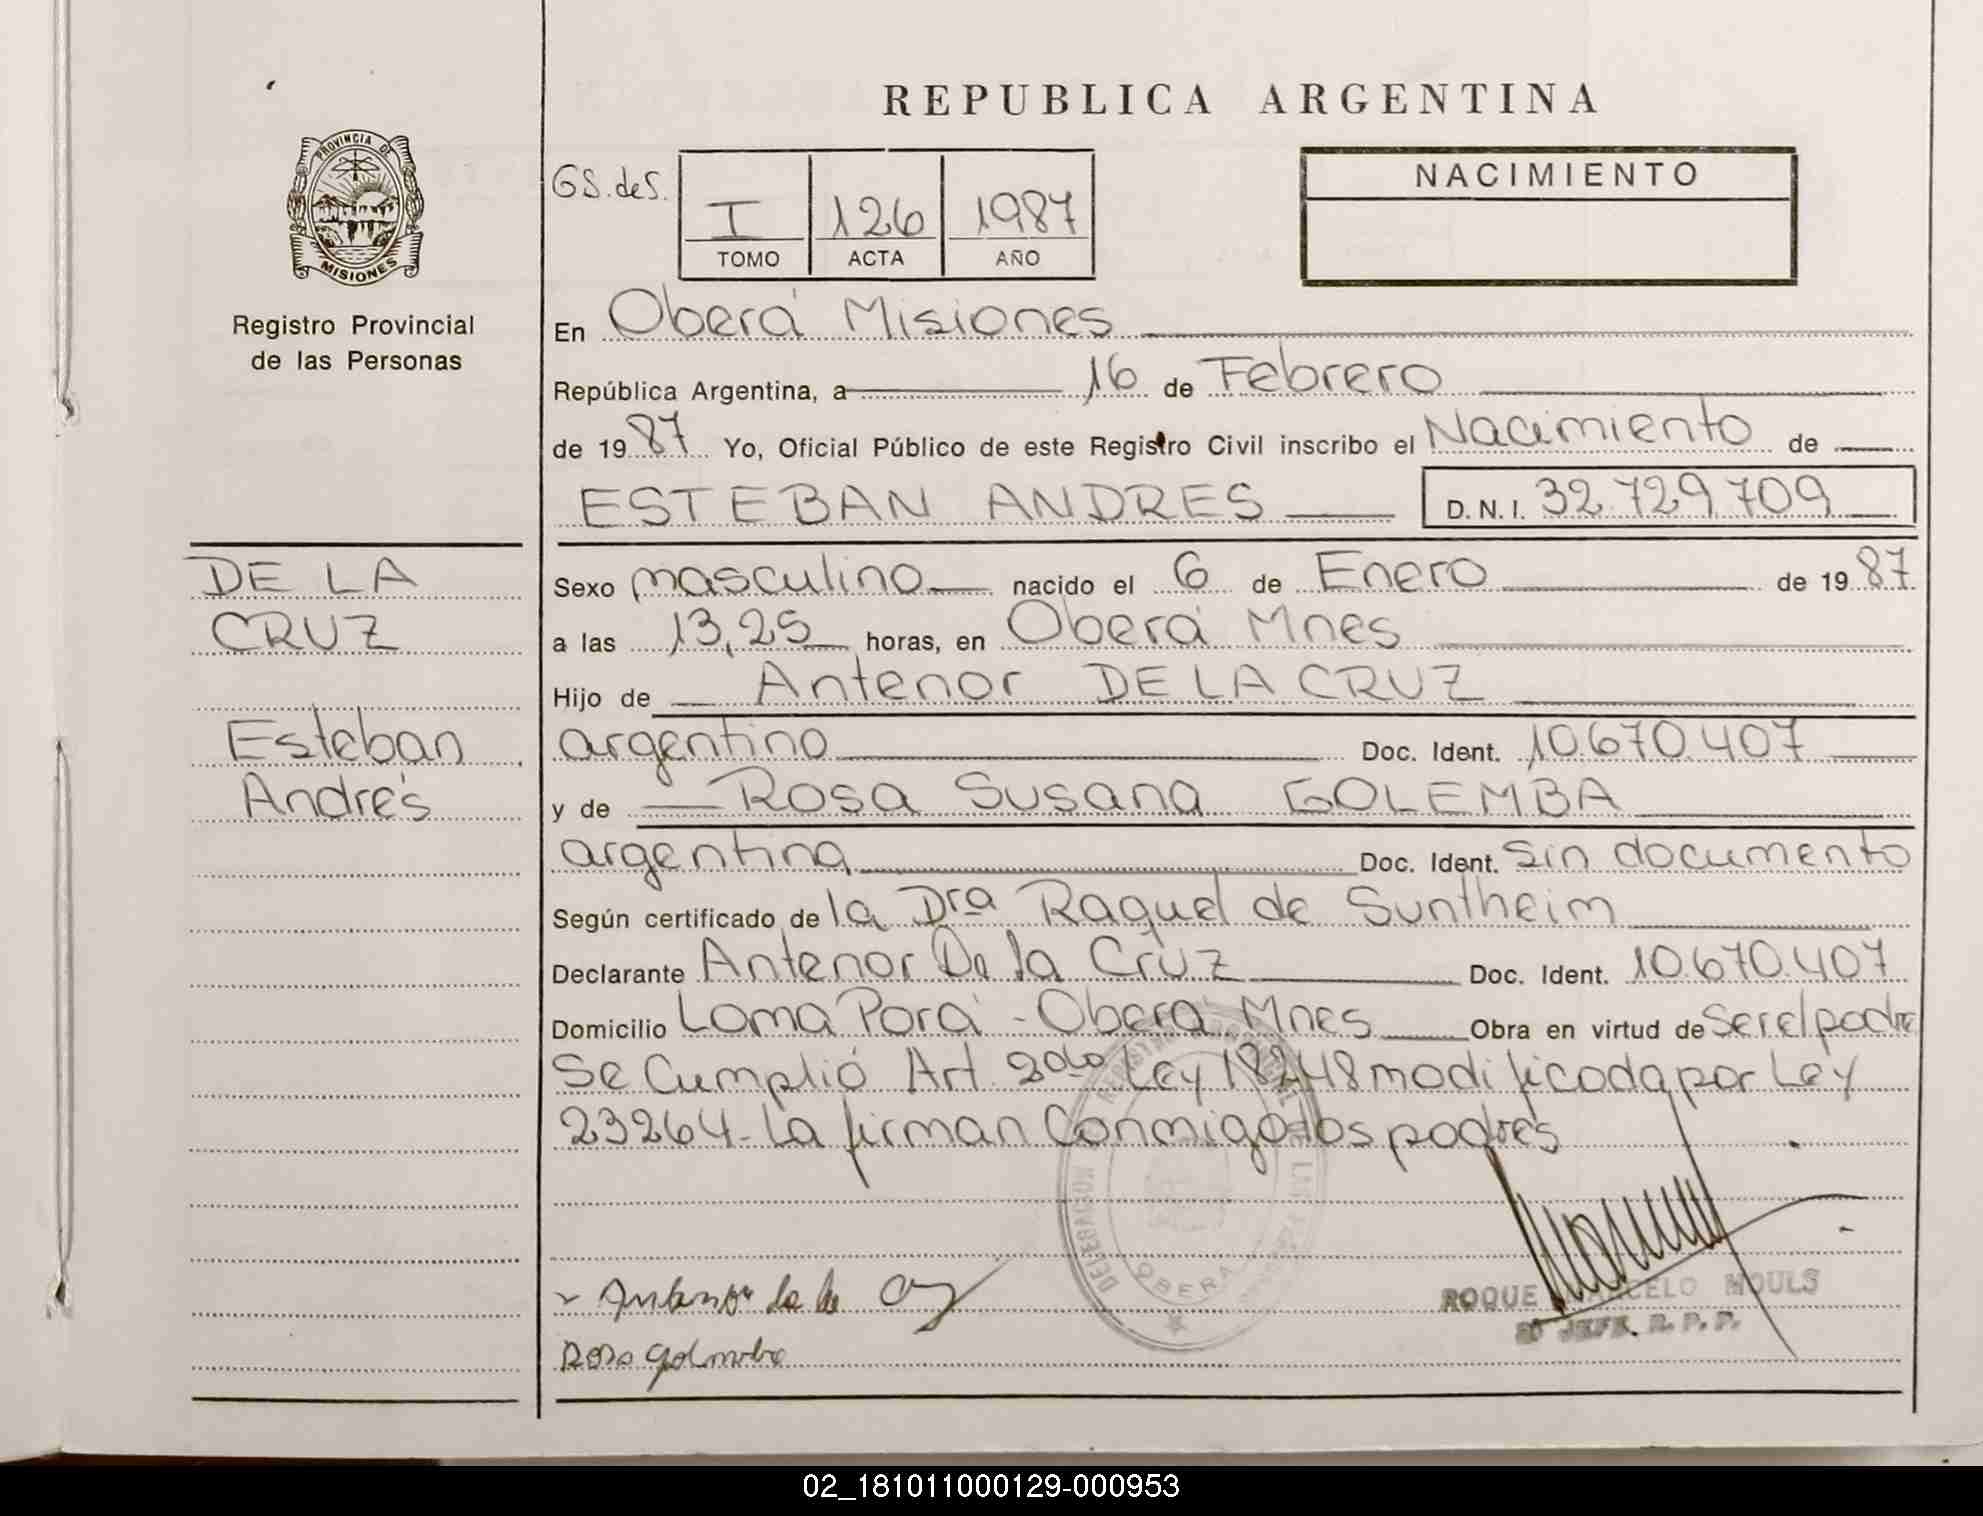 REPUBLICA ARGENTINA
PROVINCIA DE MISIONES
Registro Provincial
de las Personas
GS. deS.
I 126 1987
TOMO ACTA AÑO
NACIMIENTO
En Oberá Misiones
República Argentina, a 16 de Febrero
de 1987 Yo, Oficial Público de este Registro Civil inscribo el Nacimiento de
ESTEBAN ANDRES D.N.I. 32.729.709
DE LA
CRUZ
Esteban
Andrés
Sexo masculino nacido el 6 de Enero de 1987
a las 13,25 horas, en Oberá Mnes
Hijo de Antenor DE LA CRUZ
argentino Doc. Ident. 10.670.407
y de Rosa Susana GOLEMBA
argentina Doc. Ident. sin documento
Según certificado de la Dra Raquel de Suntheim
Declarante Antenor De la Cruz Doc. Ident. 10.670.407
Domicilio Loma Porá - Oberá Mnes Obra en virtud de ser el padre
Se Cumplió Art. 2do Ley 18248 modificada por Ley
23264 - La firman Conmigo los padres
DELEGACION REGISTRO PROVINCIAL DE LAS
OBERA
Antenor de la Cruz
Rosa Golemba
ROQUE MARCELO MOULS
JEFE R.P.P.
02_181011000129-000953